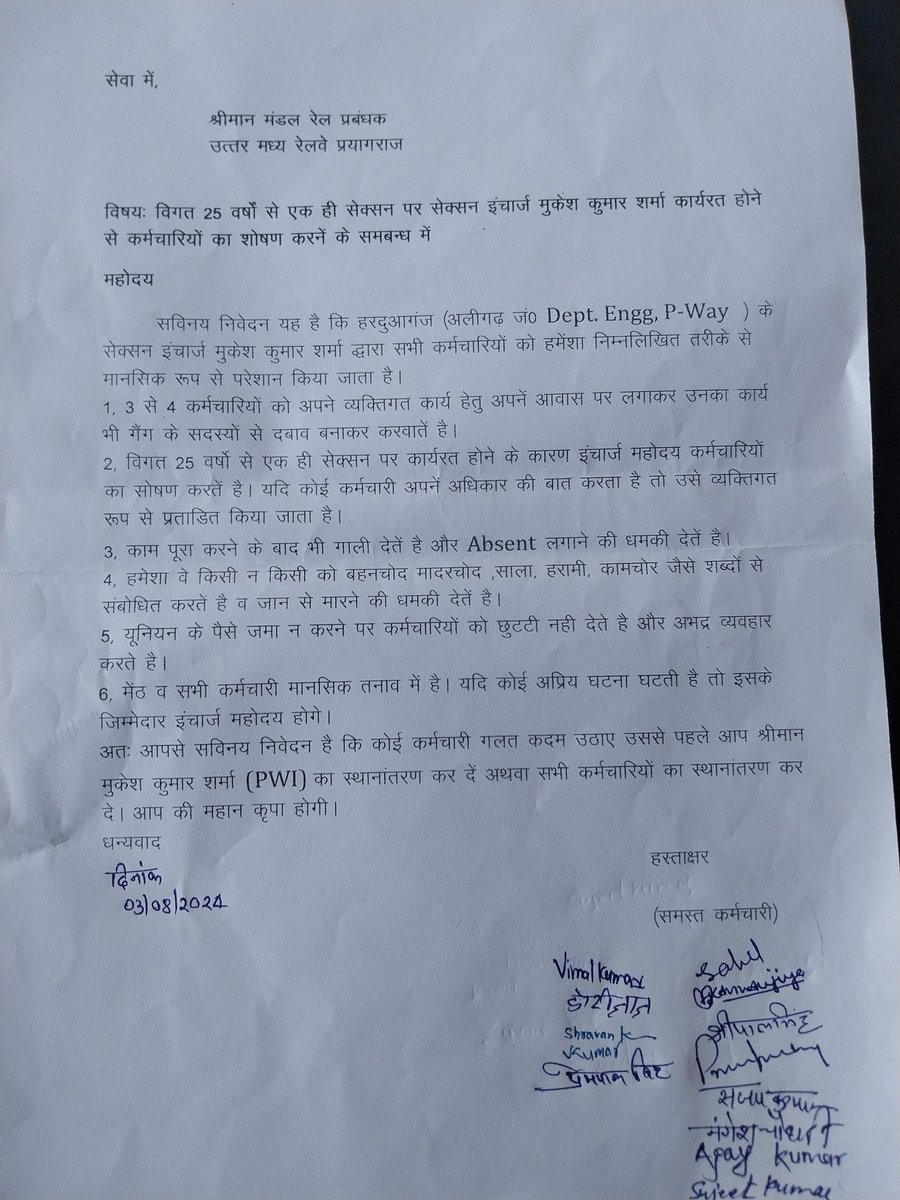 सेवा में,
श्रीमान मंडल रेल प्रबंधक
उत्तर मध्य रेलवे प्रयागराज
विषयः विगत 25 वर्षों से एक ही सेक्सन पर सेक्सन इंचार्ज मुकेश कुमार शर्मा कार्यरत होने
से कर्मचारियों का शोषण करनें के समबन्ध में
महोदय
सविनय निवेदन यह है कि हरदुआगंज (अलीगढ जं0 Dept. Engg, P-Way ) के
सेक्सन इंचार्ज मुकेश कुमार शर्मा द्वारा सभी कर्मचारियों को हमेंशा निम्नलिखित तरीके से
मानसिक रूप से परेशान किया जाता है।
1, 3 से 4 कर्मचारियों को अपने व्यक्तिगत कार्य हेतु अपनें आवास पर लगाकर उनका कार्य
भी गैंग के सदस्यों से दबाव बनाकर करवातें है।
2, विगत 25 वर्षो से एक ही सेक्सन पर कार्यरत होने के कारण इंचार्ज महोदय कर्मचारियों
का सोषण करतें है। यदि कोई कर्मचारी अपनें अधिकार की बात करता है तो उसे व्यक्तिगत
रूप से प्रताडित किया जाता है।
3, काम पूरा करने के बाद भी गाली देतें है और Absent लगाने की धमकी देतें है।
4, हमेशा वे किसी न किसी को बहनचोद मादरचोद ,साला, हरामी, कामचोर जैसे शब्दों से
संबोधित करतें है व जान से मारने की धमकी देतें है।
5, यूनियन के पैसे जमा न करने पर कर्मचारियों को छुटटी नही देते है और अभद्र व्यवहार
करते है।
6, मेंठ व सभी कर्मचारी मानसिक तनाव में है। यदि कोई अप्रिय घटना घटती है तो इसके
जिम्मेदार इंचार्ज महोदय होगे।
अतः आपसे सविनय निवेदन है कि कोई कर्मचारी गलत कदम उठाए उससे पहले आप श्रीमान
मुकेश कुमार शर्मा (PWI) का स्थानांतरण कर दें अथवा सभी कर्मचारियों का स्थानांतरण कर
दे। आप की महान कृपा होगी।
धन्यवाद
दिनांक
03/08/2024
हस्ताक्षर
(समस्त कर्मचारी)
Vimal Kumar
Shravan
Kumar
श्रीपाल सिंह
Ajay Kumar
Sujeet Kumar